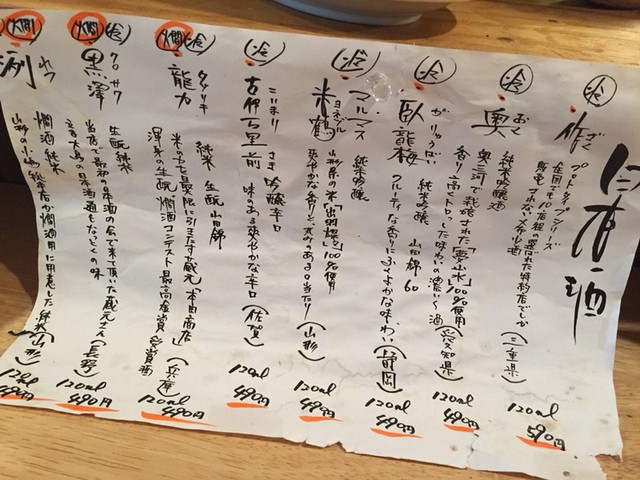 日本酒
冷
作 ざく
プロトタイプシリーズ
全国でも10店程の選ばれた特約店でしか
販売できない希少酒
(三重県)
120ml
590円
冷
奥 おく
純米吟醸酒
奥三河で栽培された「夢山水」100%使用
香り高くトロッとした味わいの濃い酒
(愛知県)
120ml
490円
冷
臥龍梅 がりゅうばい
純米吟醸 山田錦60
フルーティな香りにふくよかな味わい
(静岡)
120ml
490円
冷
マルマス
米鶴 ヨネヅル
純米吟醸
山形県の米「出羽燦々」100%使用
爽やかな香りと米のうまみのある当たり
(山形)
120ml
490円
冷
古伊万里 前 こいまり さき
吟醸辛口
味のある爽やかな辛口
(佐賀)
120ml
490円
燗 冷
龍力 タツリキ
純米 生酛 山田錦
米の力を最大限に引き出す蔵元「本田商店」
渾身の生酛 燗酒コンテスト最高金賞受賞酒
(兵庫)
120ml
490円
燗 冷
黒澤 クロサワ
生酛 純米
当店で最初の日本酒の会で来て頂いた蔵元さん
日本酒通もなっとくの味
(長野)
120ml
490円
燗
冽 れつ
燗酒 純米
山形の小嶋総本店が燗酒用に用意した純米
(山形)
120ml
490円